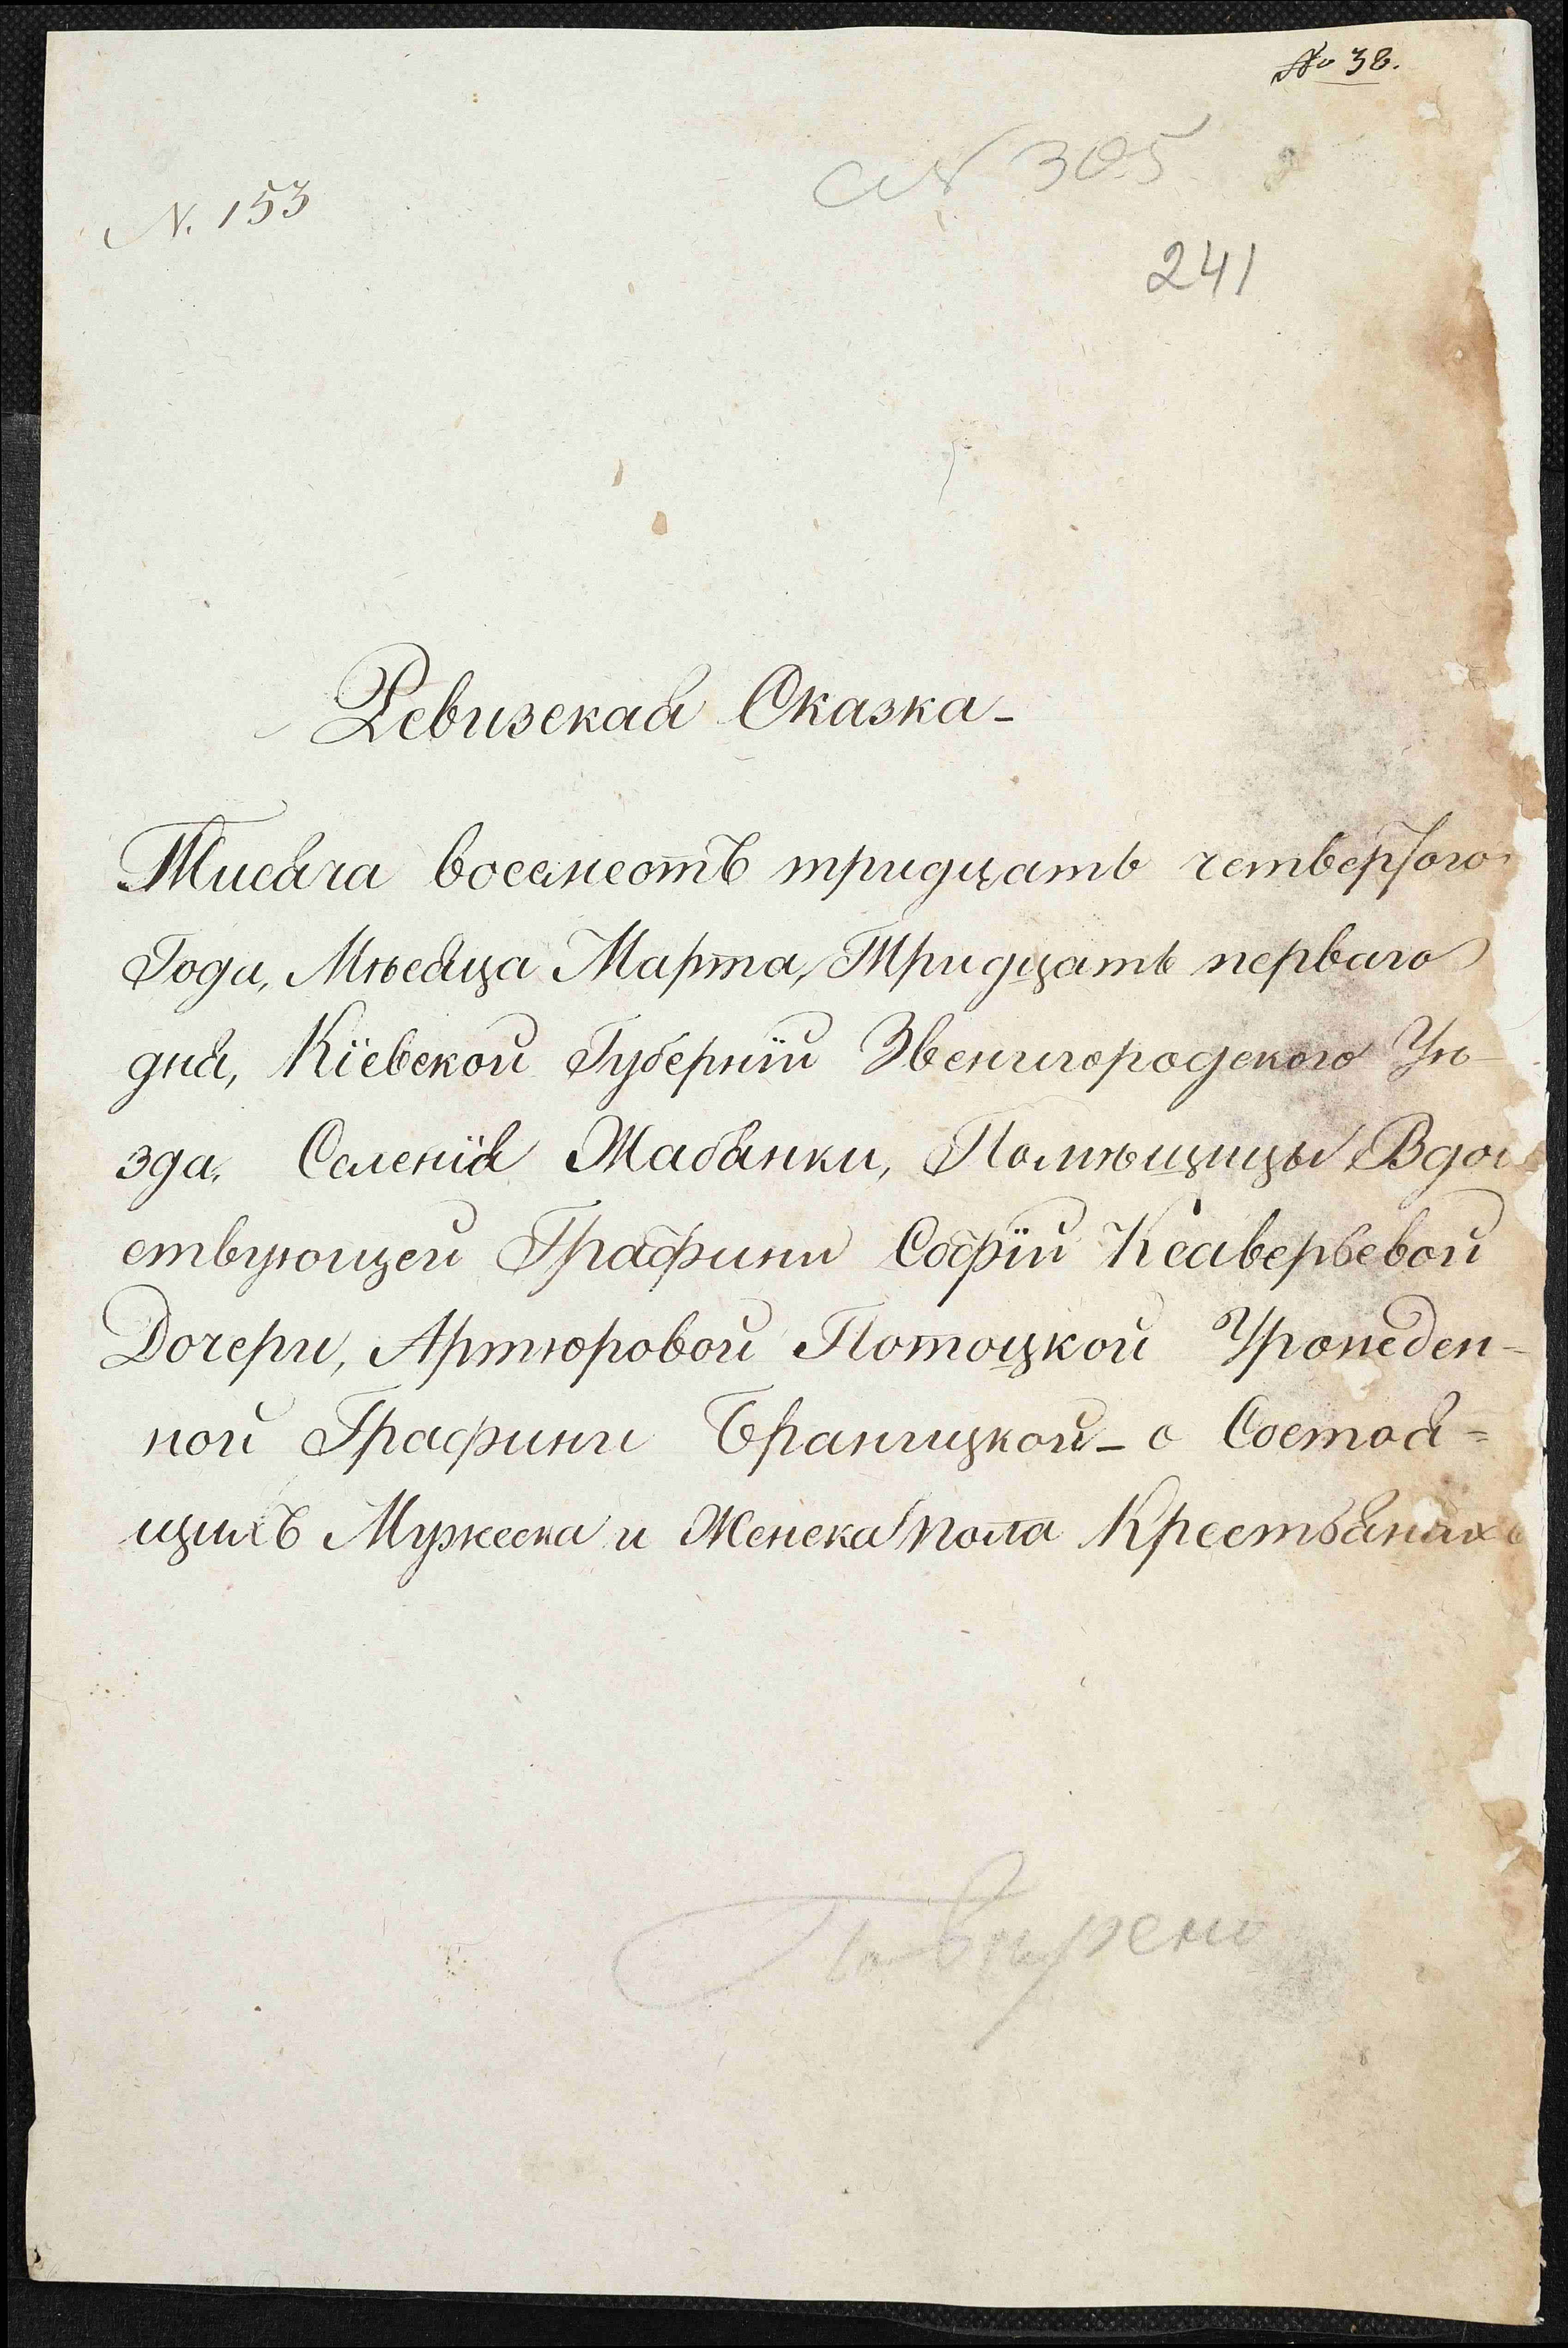 № 38.
N. 153
305
241
Ревизская Сказка-
Тисяча восемсотъ тридцать четвертого
Года, Мѣсяца Марта, Тридцать перваго
дня, Кіевской Губерніи Звенигородского Уѣ-
зда. Селенія Жабянки, Помѣщицы Вдов
ствующей Графини Софіи Ксаверьевой
Дочери, Артюровой Потоцкой Урожден-
ной Графини Браницкой - о Состоя=
щихъ Мужеска и Женска пола Крестьянахъ
Повѣрено